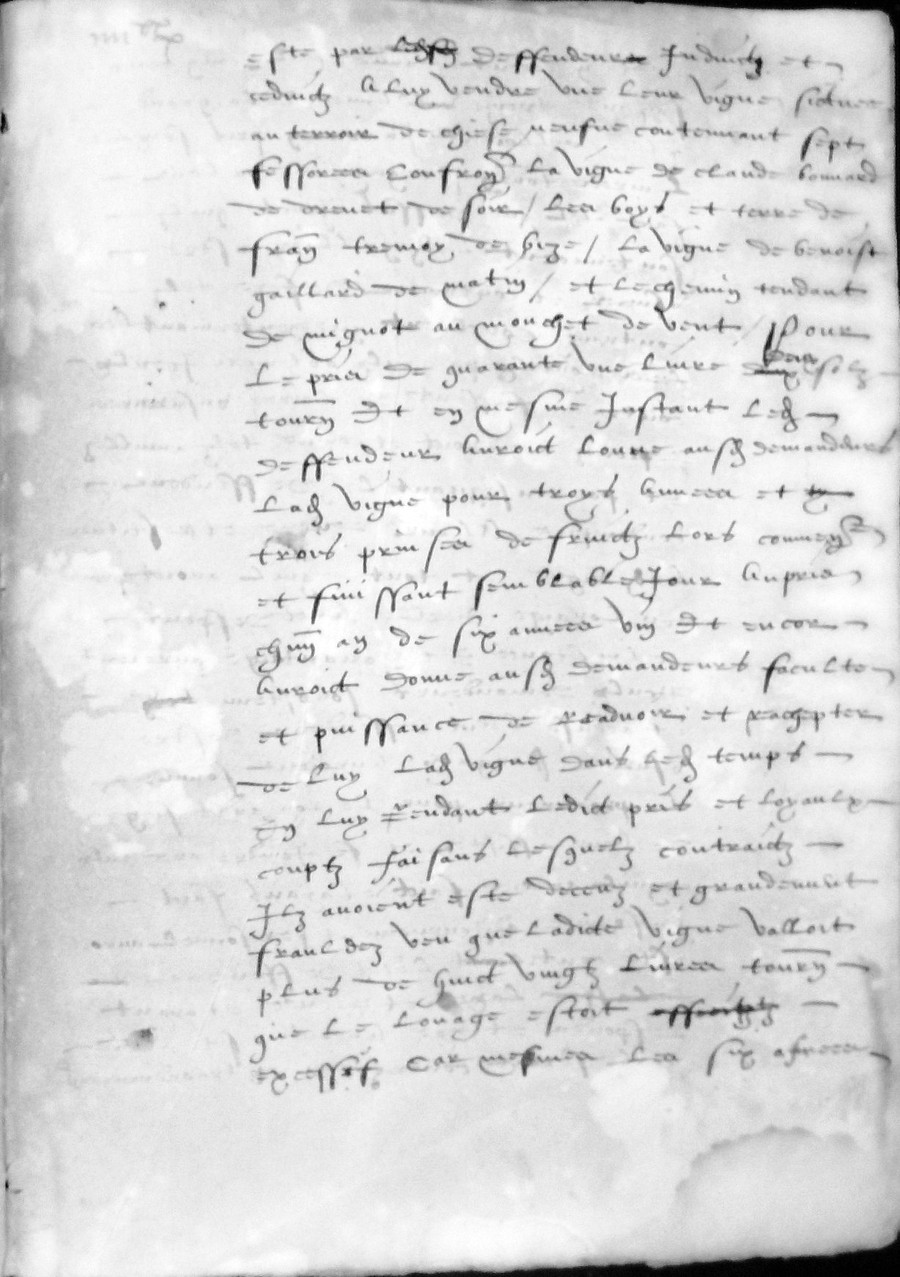 este par deffendeur Induictz et
seduictz a luy vendre une leur vigne située
au terroir de chiese neufve contenant sept
fessorees la vigne de claude bonnard
de drevet de soir / les boys et terre de
fran tremoy de bize / la vigne de benoist
gaillard de matin / et le chemin tendant
de mignote au mouchet de vent / Pour
le pries de quarante une livre solz
tourn Et en mesme Instant led
deffendeur auroict loune ausd demandeurs
lad vigne pour troys annees et
trois prinses de fruictz lors commen
et finissant semblable Jour au pries
chun an de six annees vin Et encor
auroict donne ausd demandeurs faculte
et puissance de readvoir et rachepter
de luy lad vigne dans led temps
En luy rendant ledict pris et loyaulx
couptz faisans lesquelz contraictz
Ilz avoient este deceuz et grandement
frauldez veu que ladicte vigne valloit
plus de huict vingtz livres tourn
que le louage estoit
excessif Car mesmes les six asnees